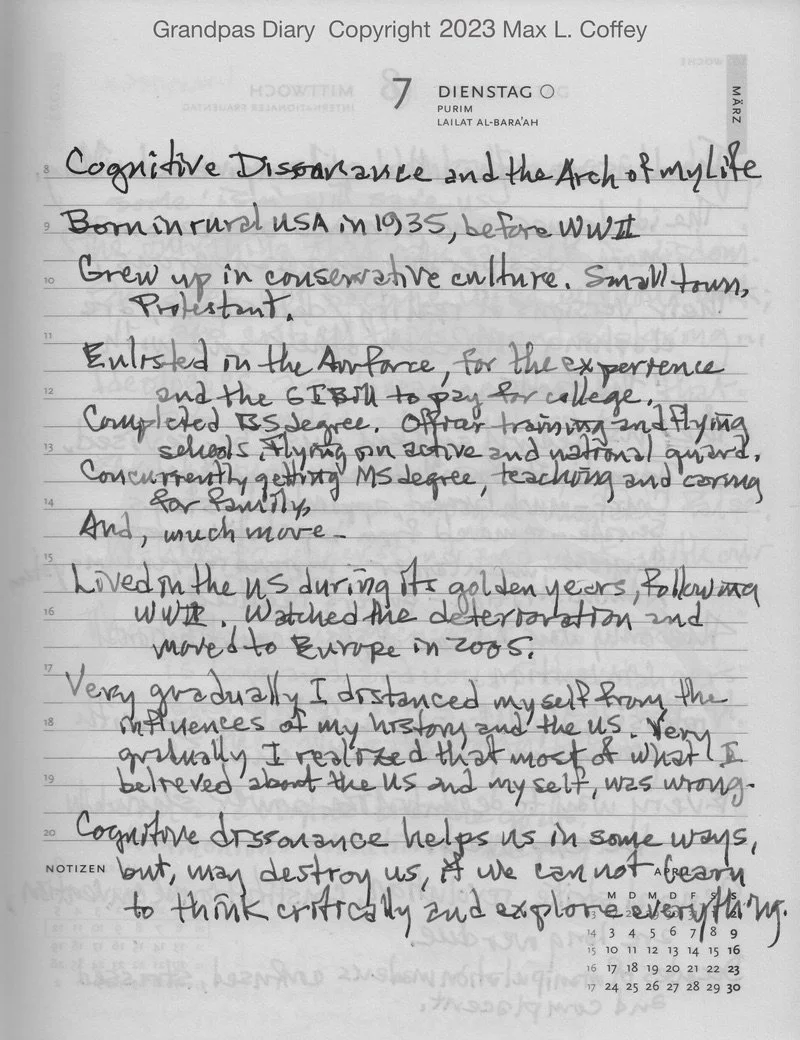 Grandpas Diary Copyright 2023 Max L. Coffey
7 DIENSTAG
PURIM
LAILAT AL-BARA'AH
MÄRZ
8 Cognitive Dissonance and the Arch of my Life
9 Born in rural USA in 1935, before WWII
10 Grew up in conservative culture. Small town,
Protestant.
11
Enlisted in the Air Force, for the experience
12 and the GI Bill to pay for college.
Completed BS degree. Officer training and flying
13 schools, Flying on active and national guard.
Concurrently getting MS degree, teaching and caring
14 for family,
And, much more -
15
Lived in the US during its golden years, following
16 WWII. Watched the deterioration and
moved to Europe in 2005.
17
Very gradually I distanced myself from the
18 influences of my history and the US. Very
gradually I realized that most of what I
19 believed about the US and myself, was wrong.
20 Cognitive dissonance helps us in some ways,
NOTIZEN but, may destroy us, if we can not learn
to think critically and explore everything.
M D M D F S S
14 3 4 5 6 7 8 9
15 10 11 12 13 14 15 16
16 17 18 19 20 21 22 23
17 24 25 26 27 28 29 30